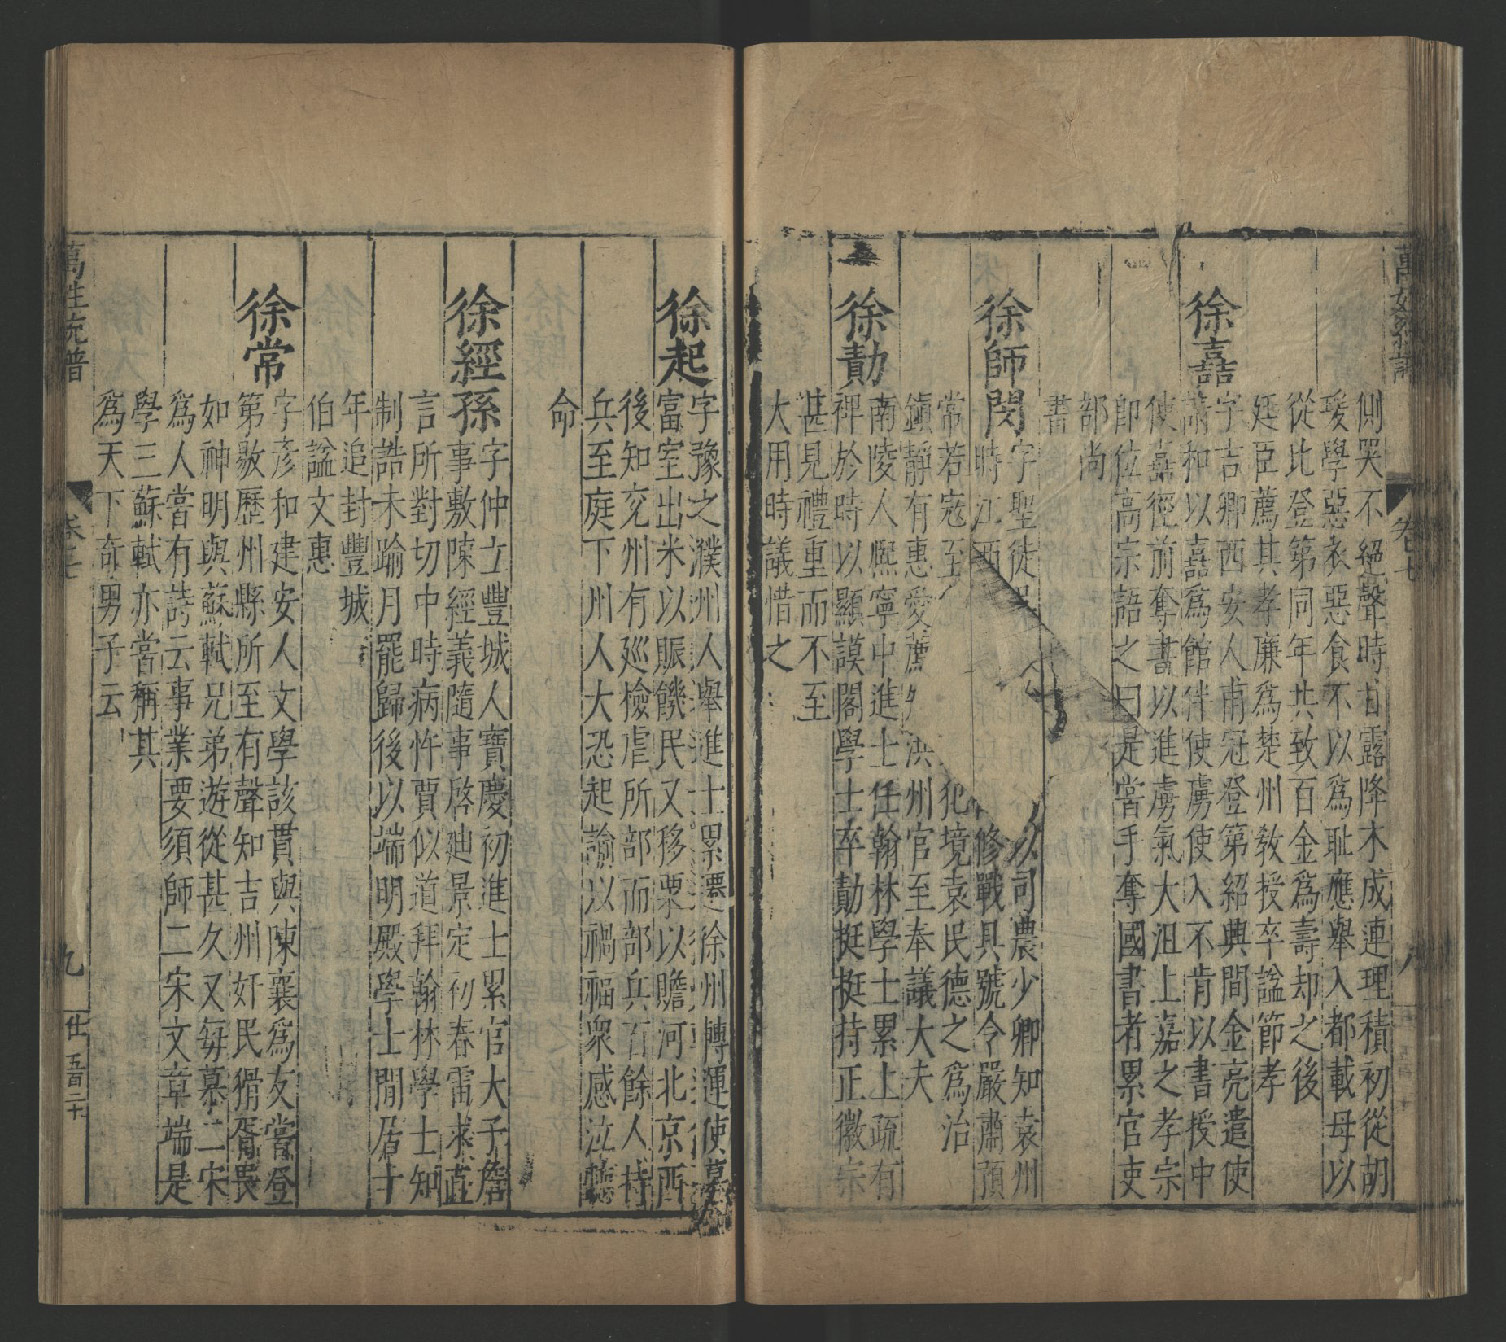 側哭不絕聲時甘露降木成連理積初從胡
瑗學惡衣惡食不以爲恥應舉入都載母以
從比登第同年共致百金爲壽却之後
廷臣薦其孝廉爲楚州教授卒諡節孝
徐嘉
字吉卿西安人甫冠登第紹興間金亮遣使
請和以嘉爲館伴使虜使入不肯以書授中
使嘉徑前奪書以進虜氣大沮上嘉之孝宗
卽位高宗語之曰是當手奪國書者累官吏
部尚
書
徐師閔
字聖徒 以司農少卿知袁州
時江西 修戰具號令嚴肅預
常若寇至 犯境袁民德之爲治
鎮靜有惠愛薦 洪州官至奉議大夫
徐勣
南陵人熙寧中進士任翰林學士累上疏有
裨於時以顯謨閣學士卒勣挺挺持正徽宗
甚見禮重而不至
大用時議惜之
徐起
字豫之濮州人舉進士累遷徐州轉運使
富室出米以賑饑民又移粟以贍河北京西
後知兖州有廵檢虐所部而部兵百餘人持
兵至庭下州人大恐起諭以禍福衆感泣聽
命
徐經孫
字仲立豐城人寶慶初進士累官太子詹
事敷陳經義隨事啓廸景定初春雷求直
言所對切中時病忤賈似道拜翰林學士知
制誥未踰月罷歸後以端明殿學士閒居十
年追封豐城
伯諡文惠
徐常
字彥和建安人文學該貫與陳襄爲友嘗登
第敭歷州縣所至有聲知吉州奸民猾胥畏
如神明與蘇軾兄弟遊從甚久又每慕二宋
爲人嘗有詩云事業要須師二宋文章端是
學三蘇軾亦嘗稱其
爲天下奇男子云
萬姓統譜
卷之七
九
仕
五百二十